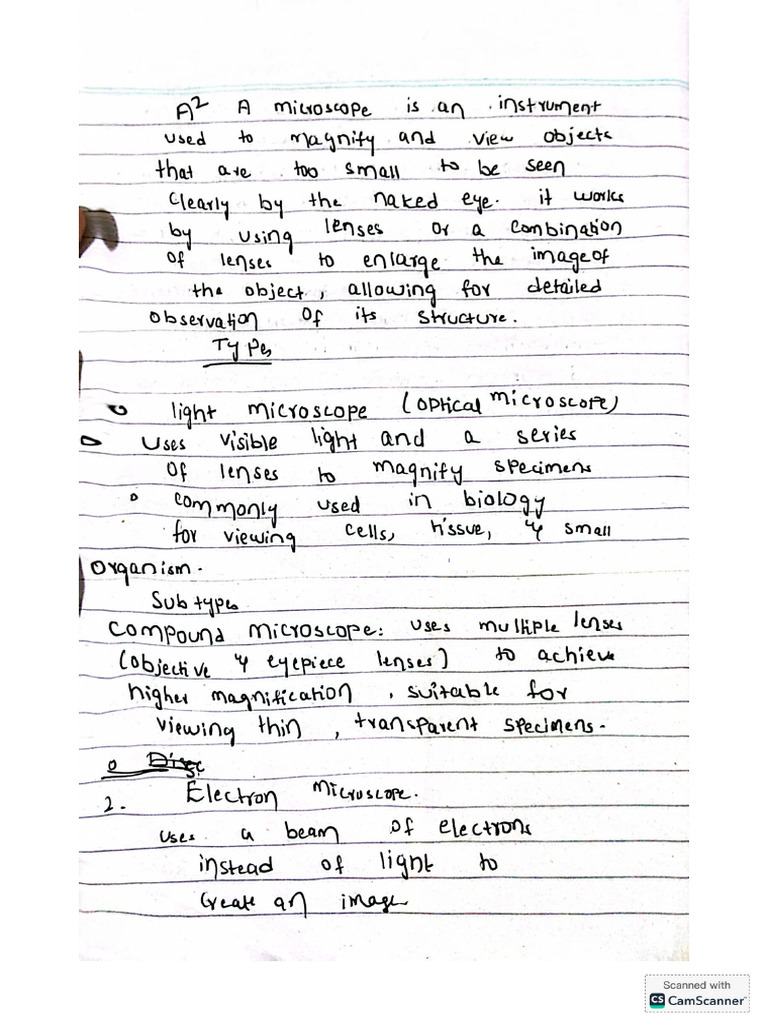 A² A microscope is an instrument
used to magnify and view objects
that are too small to be seen
clearly by the naked eye. it works
by using lenses or a combination
of lenses to enlarge the image of
the object, allowing for detailed
observation of its structure.
Types
light microscope (optical microscope)
Uses visible light and a series
of lenses to magnify specimens
commonly used in biology
for viewing cells, tissue, & small
organism.
Sub types
Compound microscope: uses multiple lenses
(objective & eyepiece lenses) to achieve
higher magnification, suitable for
viewing thin, transparent specimens.
2. Electron microscope.
uses a beam of electrons
instead of light to
create an image
Scanned with
CS CamScanner